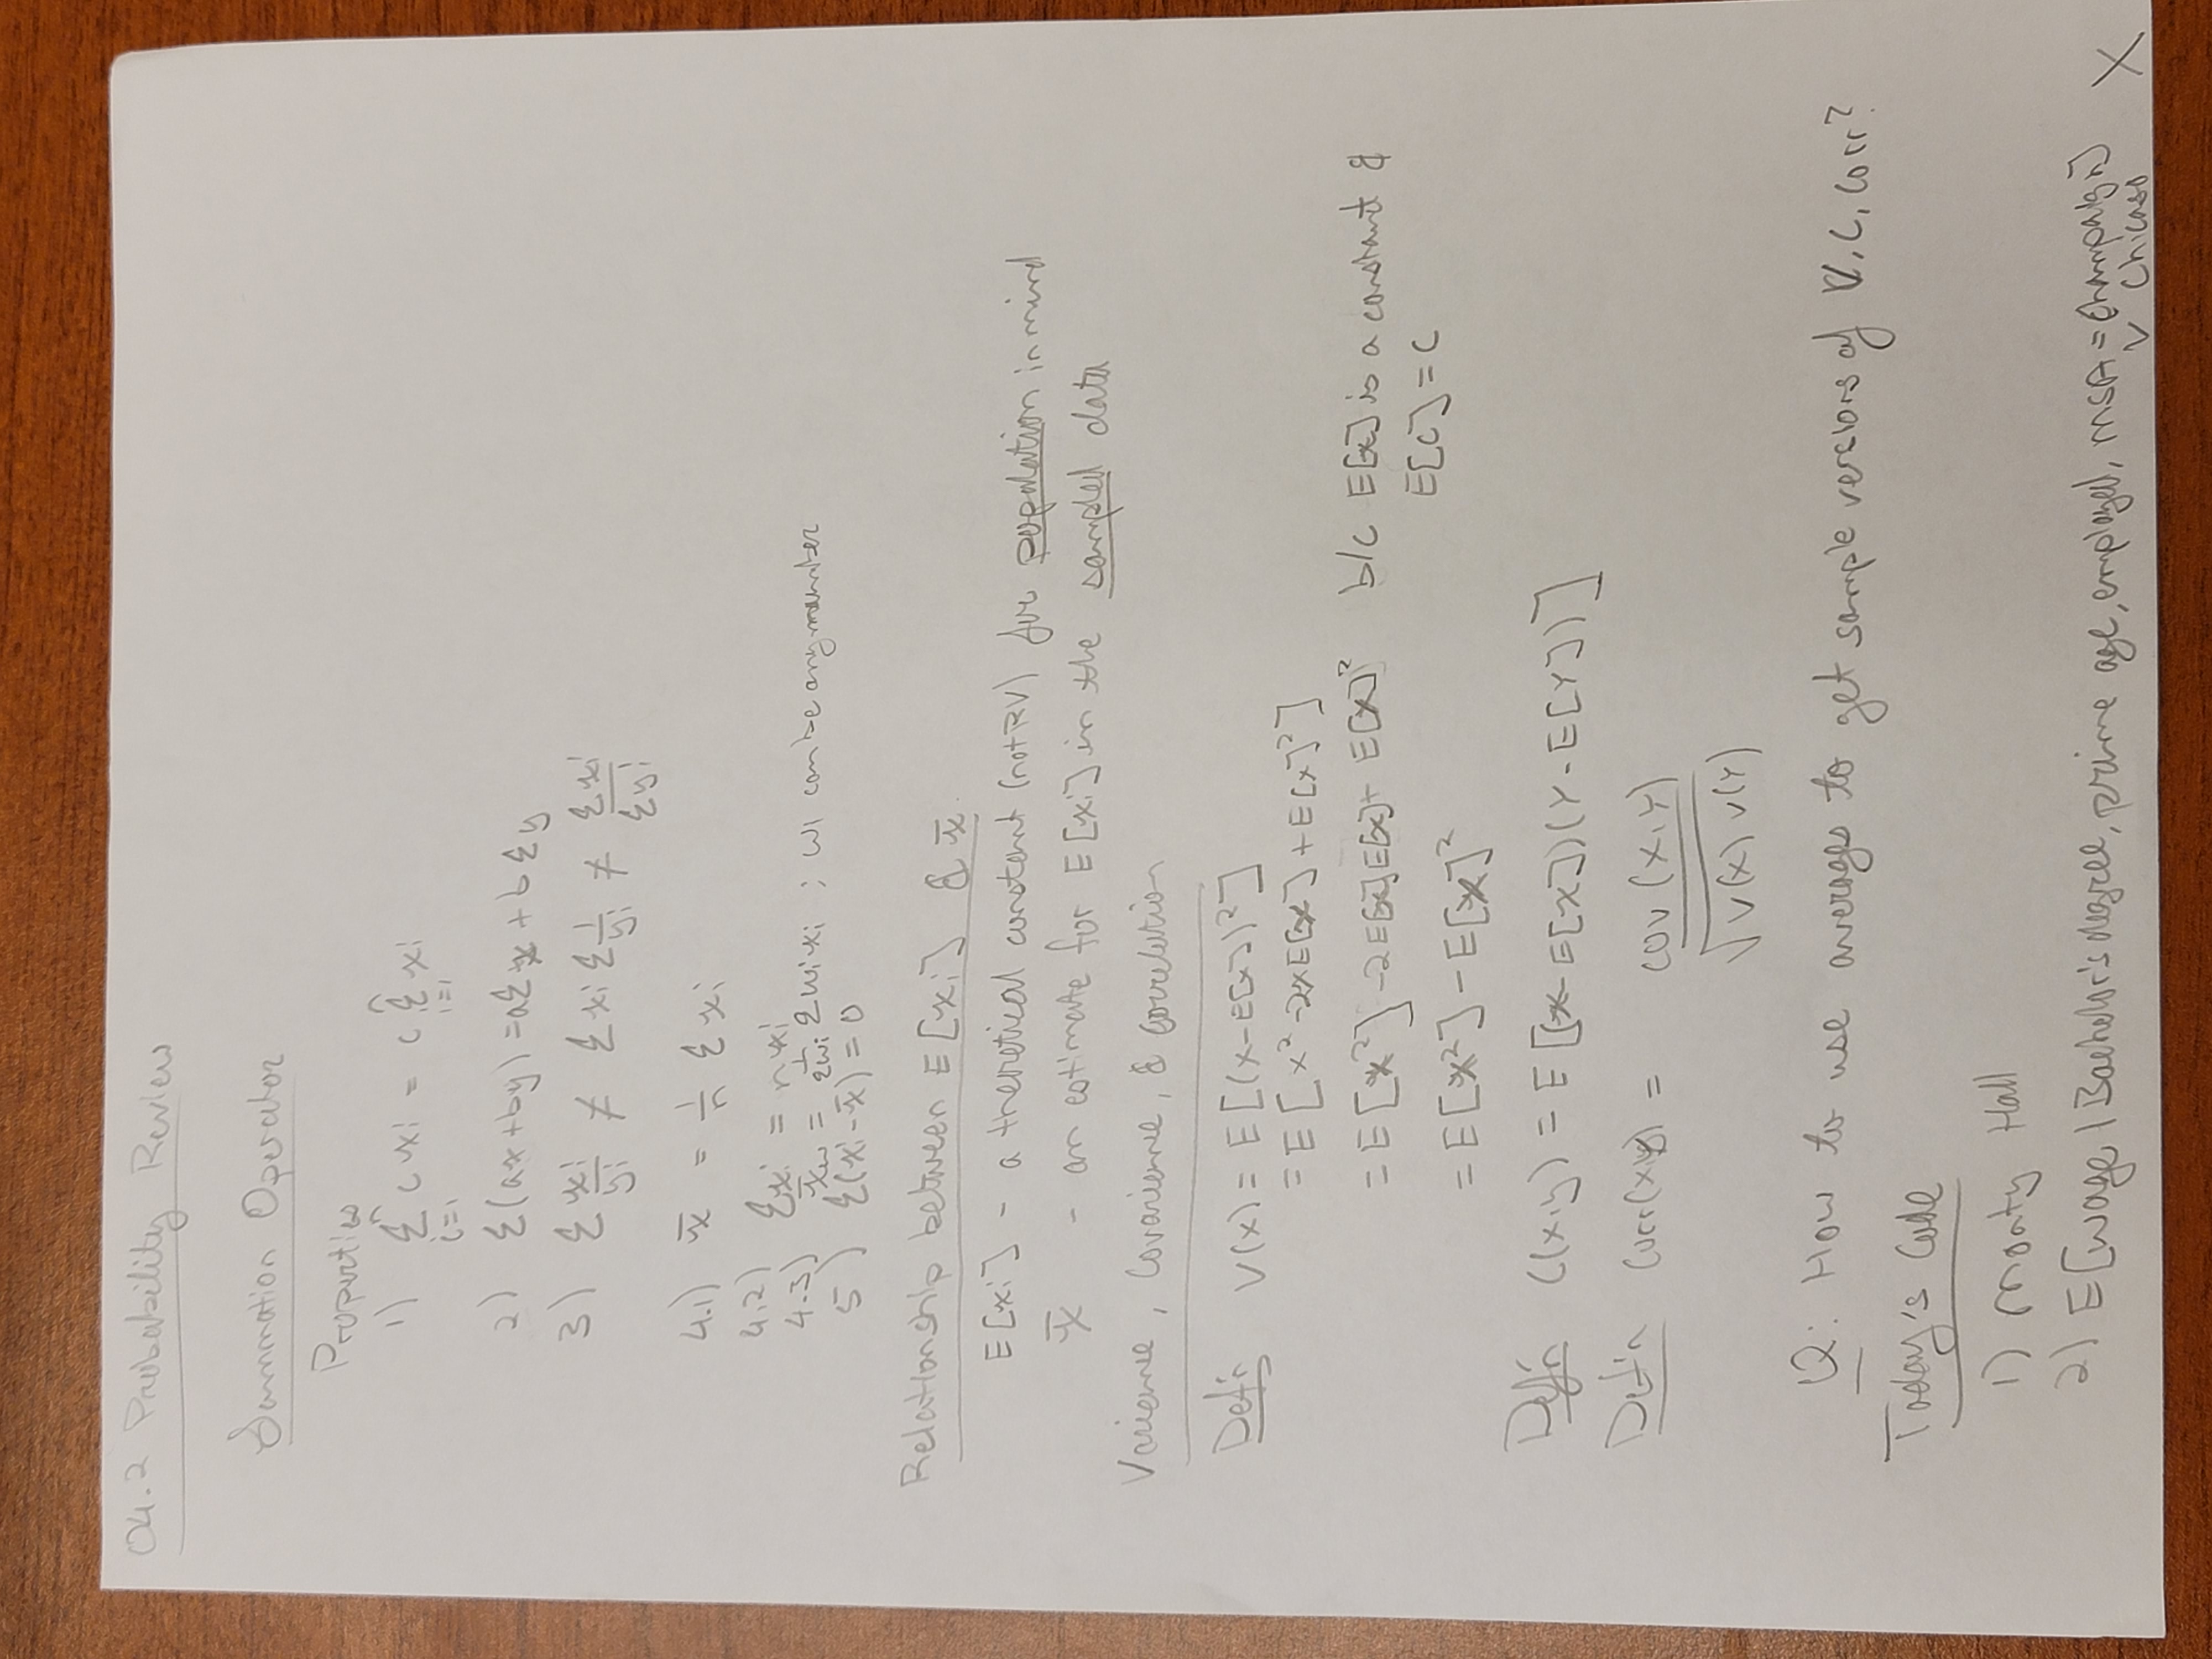 04.2 Probability Review
Summation Operator
Properties
1) Σ_{i=1}^{n} c xi = c Σ_{i=1}^{n} xi
2) Σ(ax+by) = aΣx + bΣy
3) Σ xi/yi ≠ Σxi Σ 1/yi ≠ Σxi/Σyi
4.1) x̄ = 1/n Σ xi
4.2) Σxi = n xi
4.3) x̄w = 1/Σwi Σwixi ; wi can be any number
5) Σ(xi-x̄) = 0
Relationship between E[xi] & x̄.
E[xi] - a theoretical constant (not RV) for population in mind
x̄ - an estimate for E[xi] in the sampled data
Variance, Covariance, & Correlation
Def'n V(X) = E[(X-E[X])²]
= E[X²-2XE[X]+E[X]²]
= E[X²]-2E[X]E[X]+E[X]² b/c E[X] is a constant &
E[C]=C
= E[X²]-E[X]²
Def'n C(X,y) = E[(X-E[X])(Y-E[Y])]
Def'n Corr(X,y) = cov(X,Y)
√V(X)V(Y)
Q: How to use averages to get sample versions of V, C, Corr?
Today's Code
1) Monty Hall
2) E[wage | Bachelor's degree, prime age, employed, MSA = Champaign]
v Chicago X